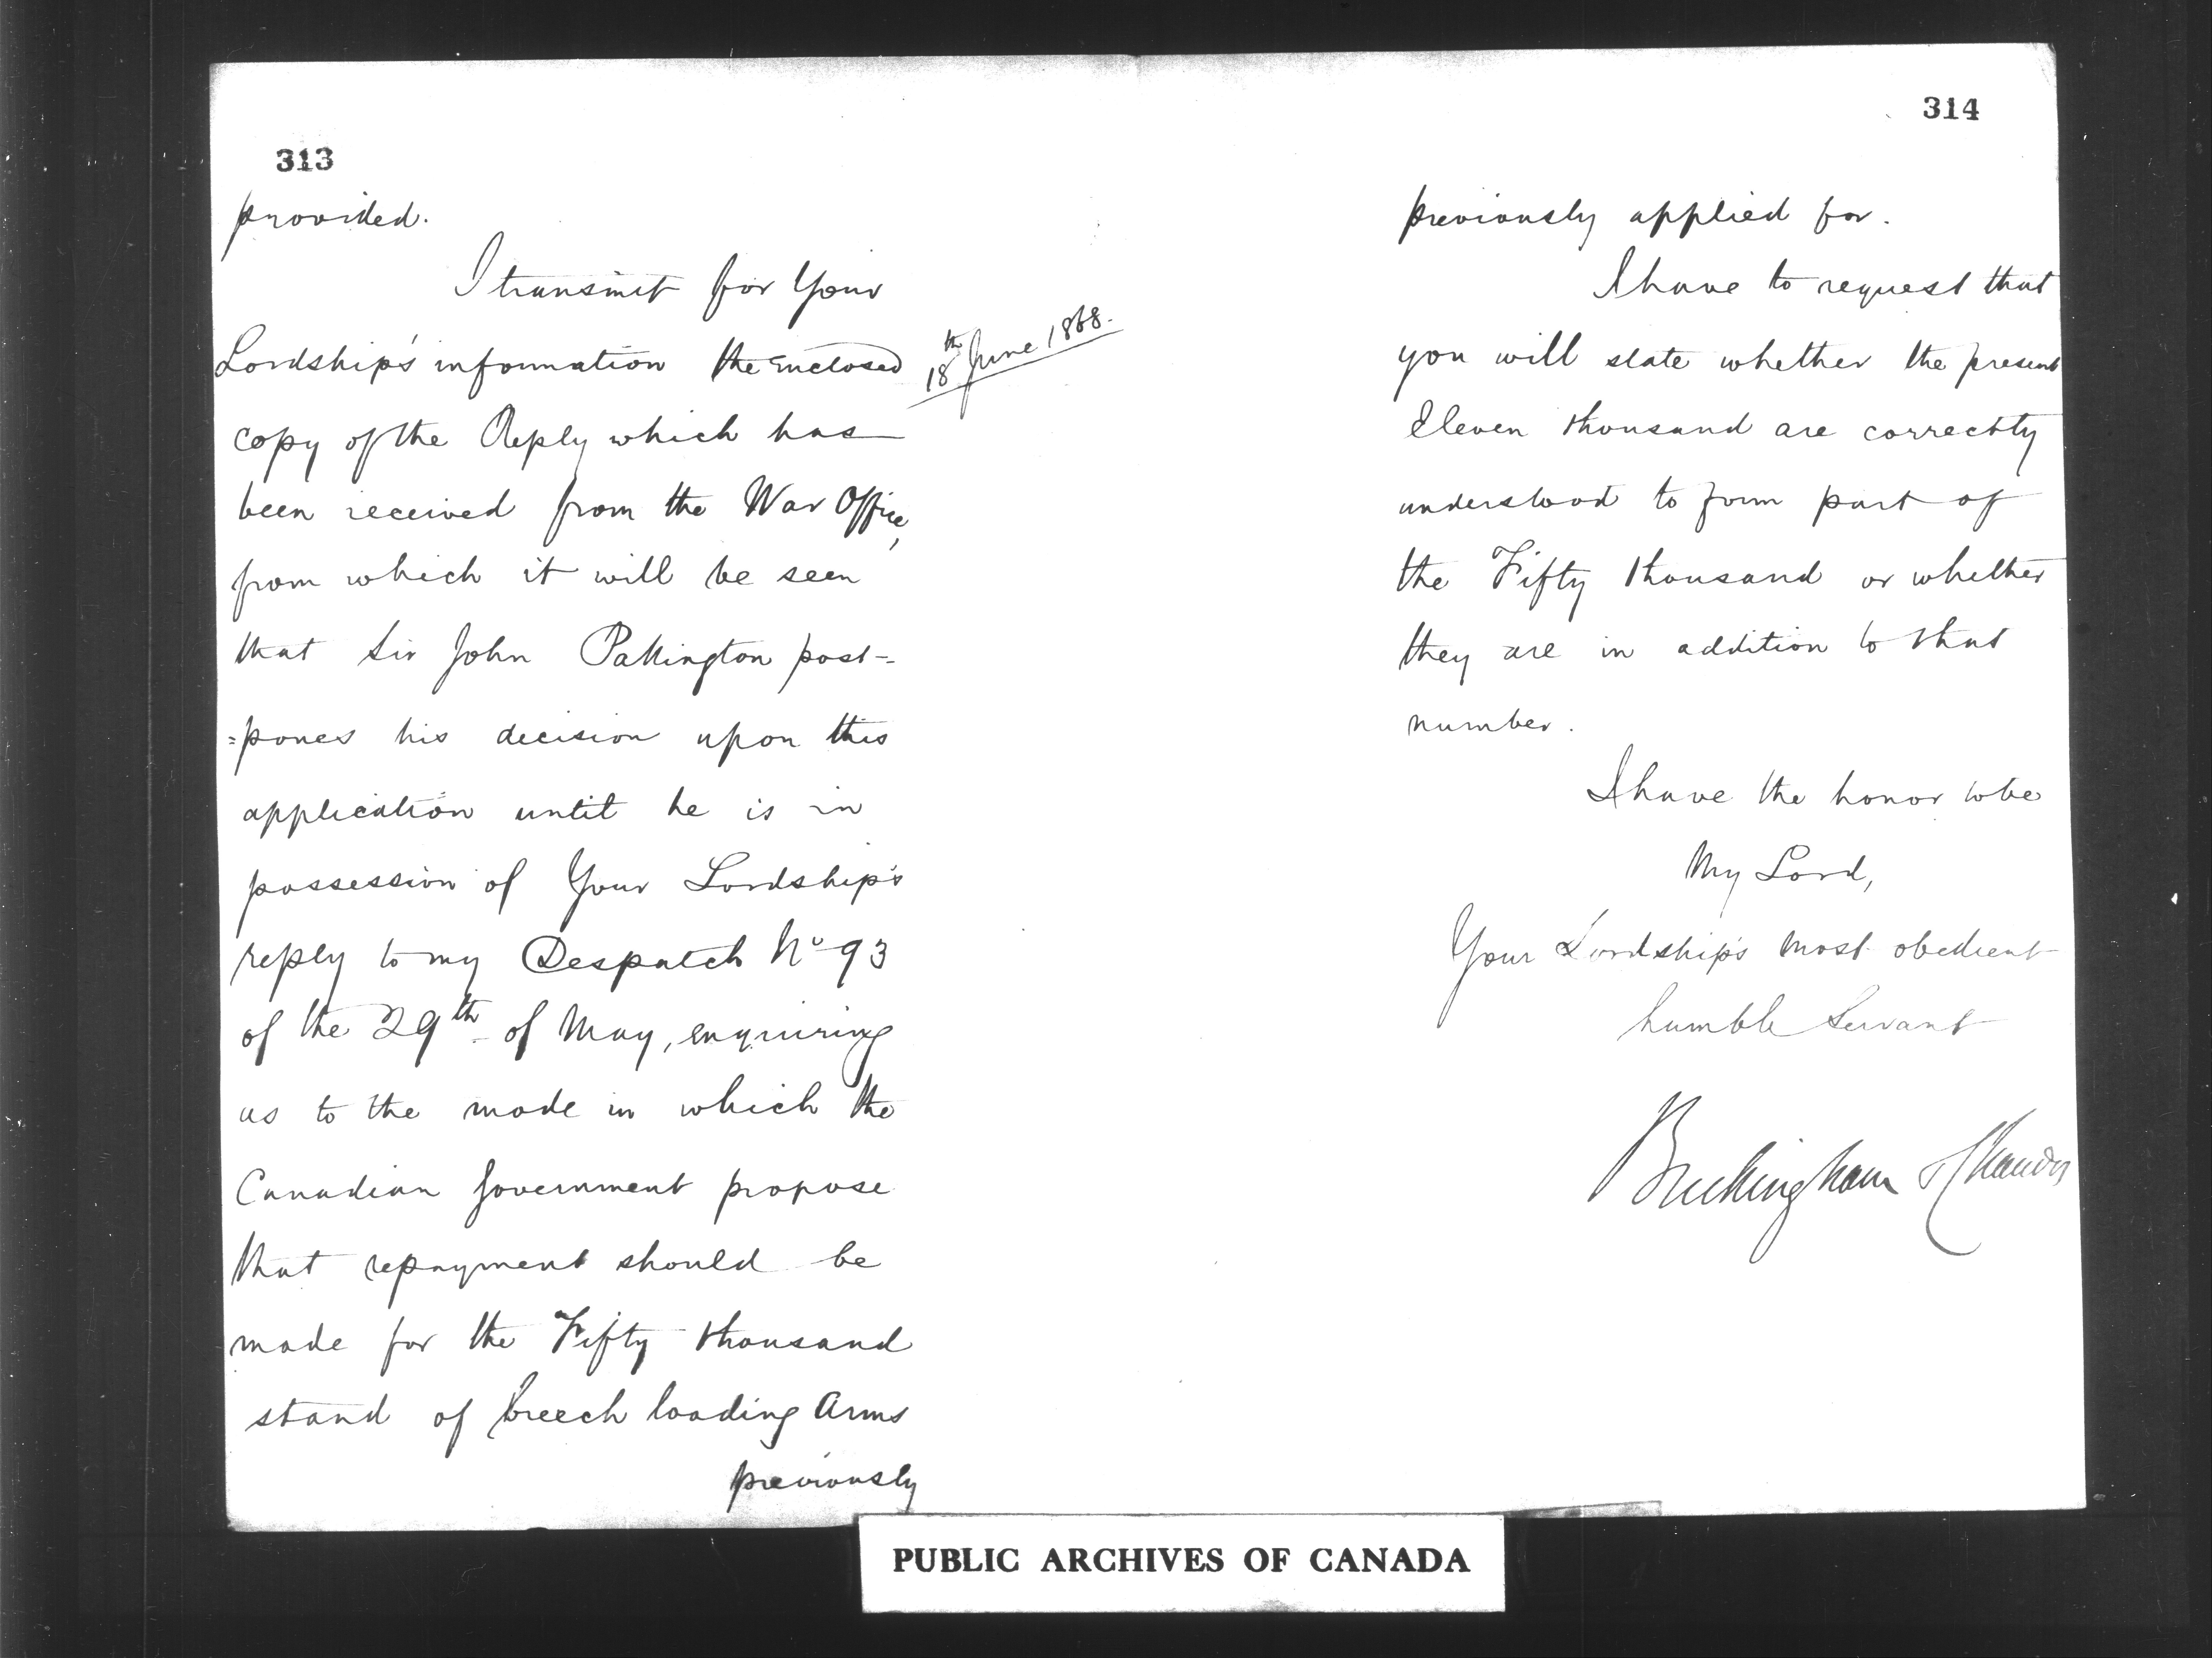 313
provided.
I transmit for Your
Lordship's information the enclosed
18th June 1868.
copy of the Reply which has
been received from the War Office,
from which it will be seen
that Sir John Pakington post-
=pones his decision upon this
application until he is in
possession of Your Lordship's
reply to my Despatch No 93
of the 29th of May, enquiring
as to the mode in which the
Canadian Government propose
that repayment should be
made for the Fifty thousand
stand of breech loading Arms
previously
314
previously applied for.
I have to request that
you will state whether the present
Eleven thousand are correctly
understood to form part of
the Fifty thousand or whether
they are in addition to that
number.
I have the honor to be
My Lord,
Your Lordship's most obedient
humble Servant
Buckingham & Chandos
PUBLIC ARCHIVES OF CANADA